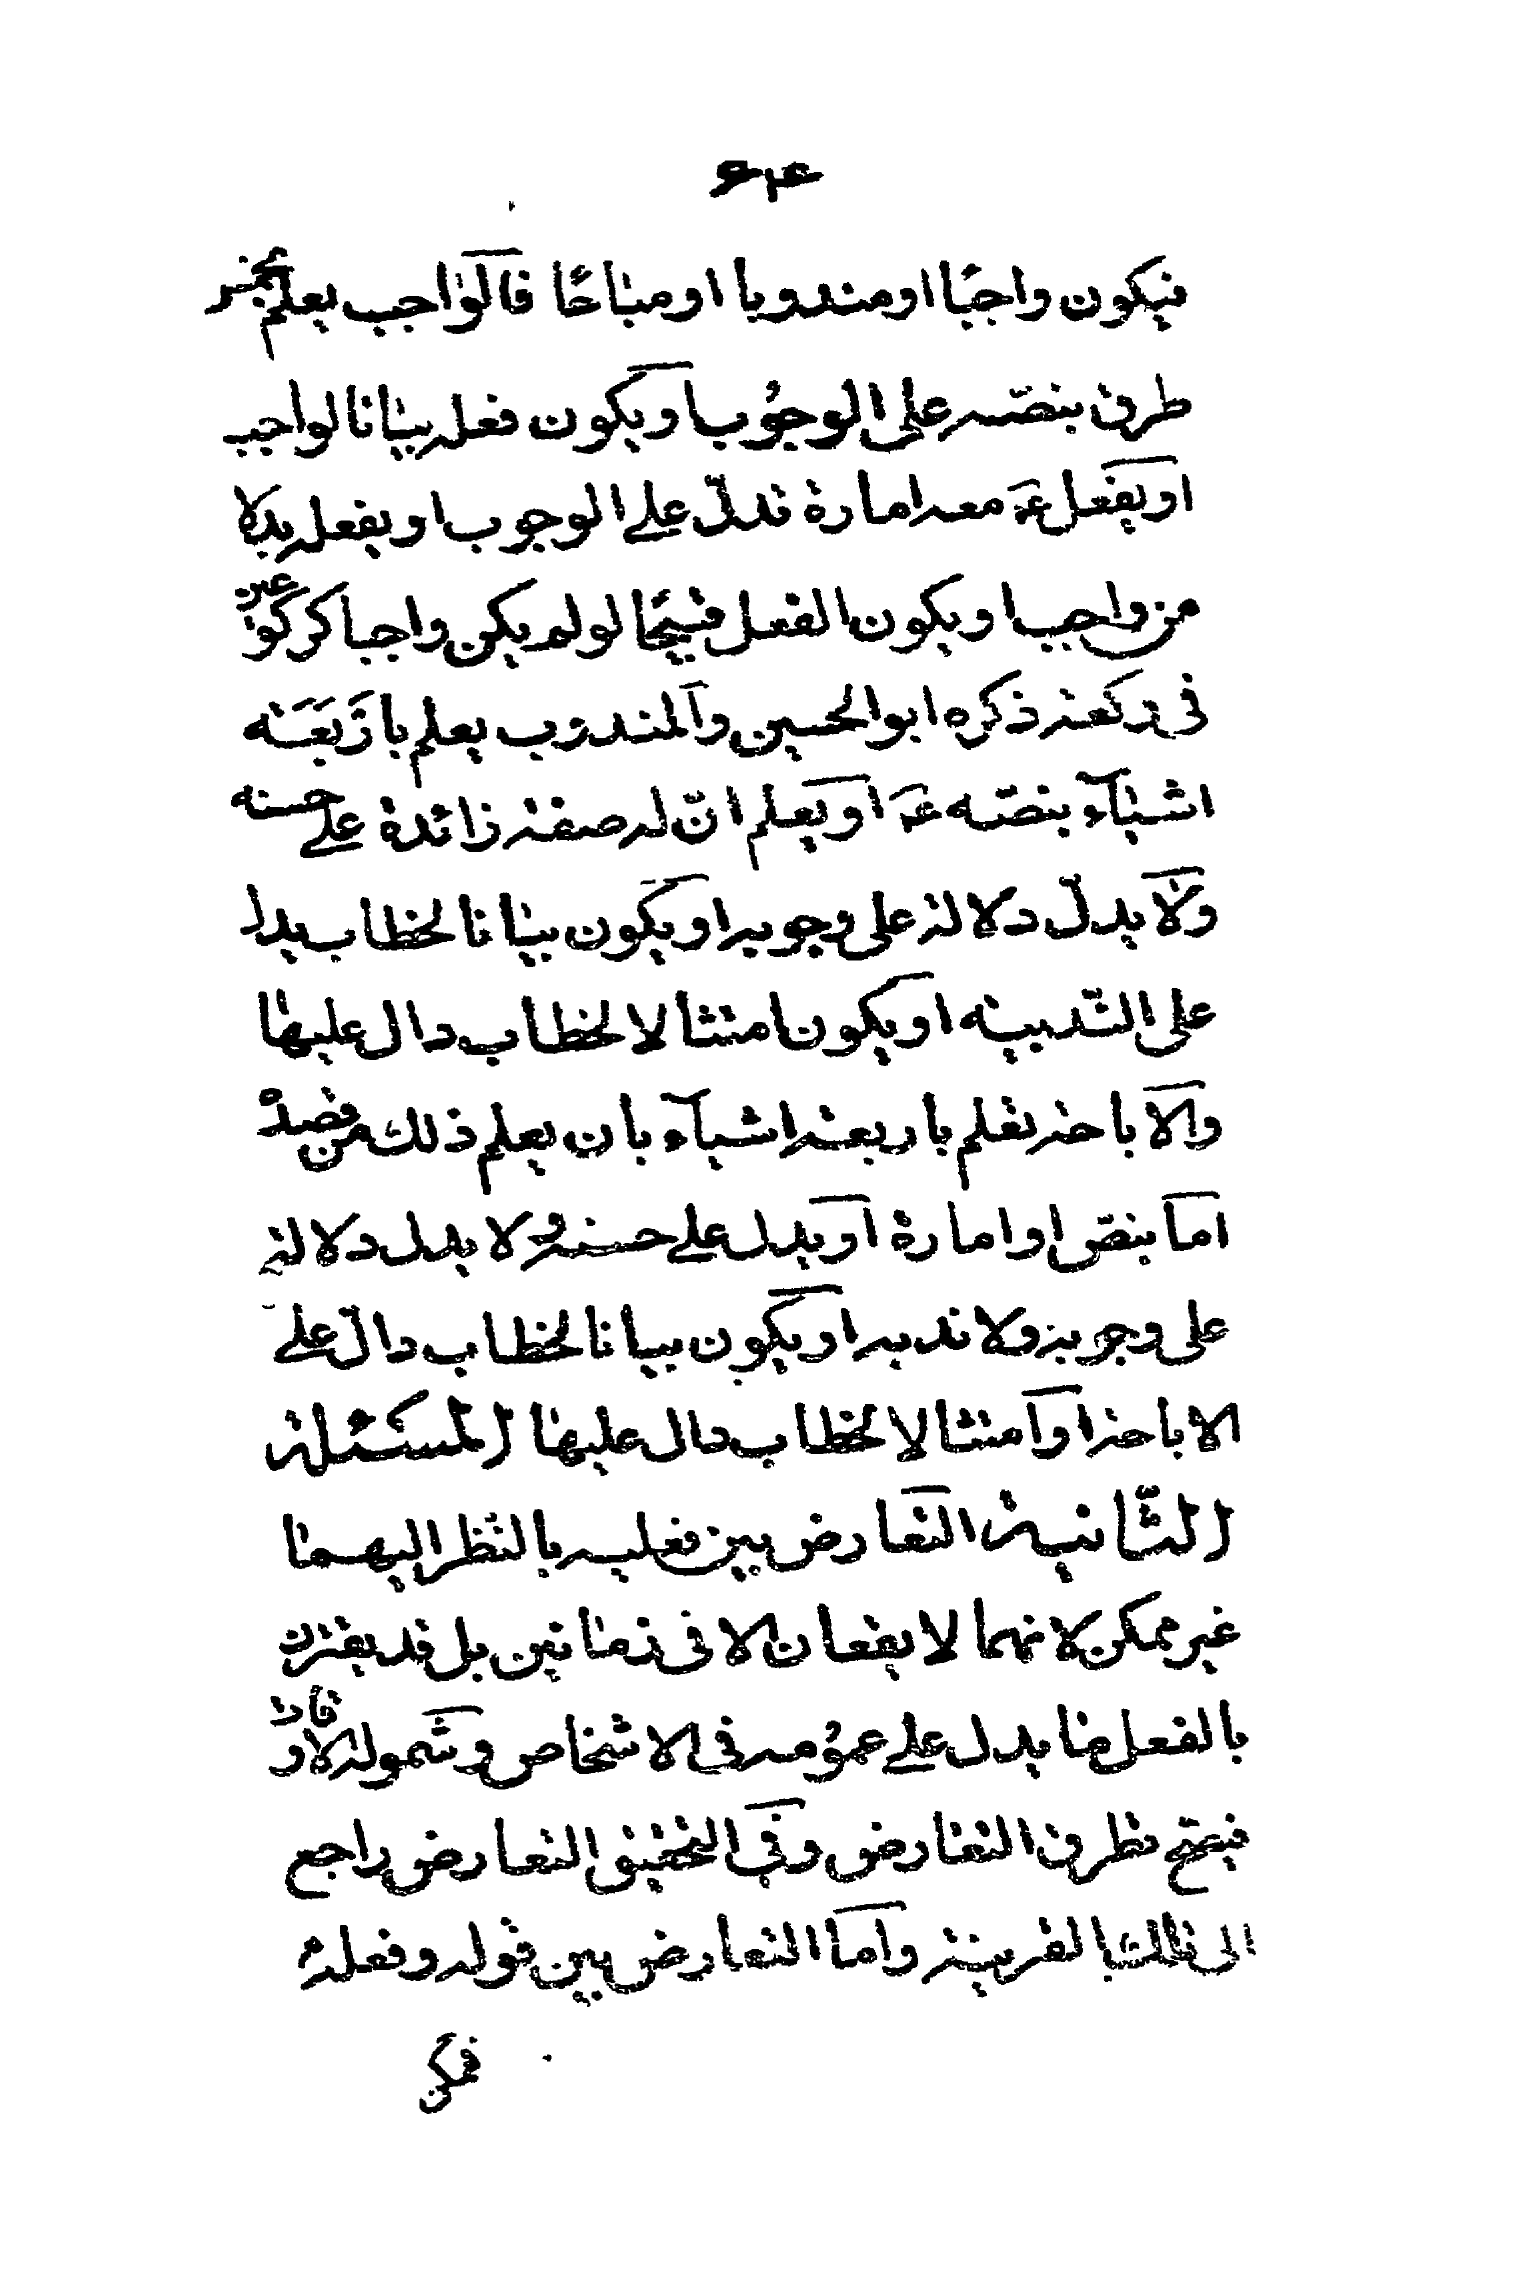 ۶۱۴
فيكون واجبًا او مندوبا او مباحًا فالواجب يعلم بخمس
طرق بنصّه على الوجُوب او يكون فعله بيانا لواجب
او يفعل عَـ معه امارة تدلّ على الوجوب او يفعله بدلا
من واجب او يكون الفعل قبيحًا لو لم يكن واجبا كركوعين
فى ركعة ذكره ابو الحسين والمندوب يعلم بارَبَعَة
اشياء بنصّه عَـ او يعلم انّ له صفة زائدة على حسنه
ولا يدلّ دلالة على وجوبه او يكون بيانا لخطاب يدل
على النّدبية او يكون امتثالا لخطاب دال عليها
والاباحة تعلم باربعة اشياء بان يعلم ذلك من قصده
اما بنص او امارة او يدل على حسنه ولا يدل دلالة
على وجوبه ولا ندبه او يكون بيانا لخطاب دالّ على
الاباحة او امتثالا لخطاب دال عليها المسئلة
الثّانية التعارض بين فعليه بالنّظر اليهما
غير ممكن لانهما لا يقعان الا فى زمانين بل قد يقترن
بالفعل ما يدل على عمُومه فى الاشخاص وشموله لاوقات
فيصح تطرق التعارض وفى التحقيق التعارض راجع
الى تلك القرينة واما التعارض بين قوله وفعله
فمكن